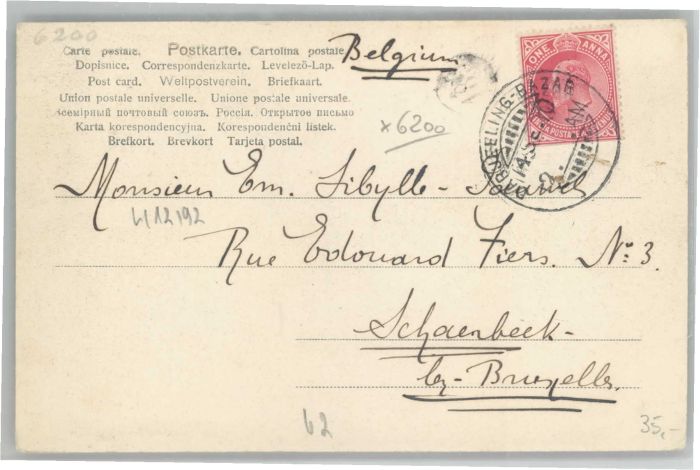 6200
Carte postale. Postkarte. Cartolina postale
Dopisnice. Correspondenzkarte. Levelező-Lap.
Post card. Weltpostverein. Briefkaart.
Union postale universelle. Unione postale universale.
Всемірный почтовый союзъ. Россія. Открытое письмо
Karta korespondencyjna. Korespondenční listek.
Brefkort. Brevkort. Tarjeta postal.
Belgium
ONE ANNA
INDIA POSTAGE
DARJEELING-BAZAR
AM
x6200
Monsieur Em. Sibylle-
4112192
Rue Edouard Fiers. No: 3.
Schaerbeek-
lez-Bruxelles.
62
35,-